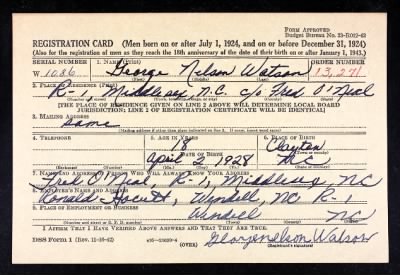 FORM APPROVED
Budget Bureau No. 33-R012-43
REGISTRATION CARD (Men born on or after July 1, 1924, and on or before December 31, 1924)
(Also for the registration of men as they reach the 18th anniversary of the date of their birth on or after January 1, 1943.)
SERIAL NUMBER 1. NAME (Print) ORDER NUMBER
W 1086 George Nelson Watson 13,271
2. PLACE OF RESIDENCE (Print)
R-1, Middlesex, N.C. c/o Fred O'Neal
[THE PLACE OF RESIDENCE GIVEN ON LINE 2 ABOVE WILL DETERMINE LOCAL BOARD
JURISDICTION; LINE 2 OF REGISTRATION CERTIFICATE WILL BE IDENTICAL]
3. MAILING ADDRESS
Same
[Mailing address if other than place indicated on line 2. If same, insert word same]
4. TELEPHONE 5. AGE IN YEARS 6. PLACE OF BIRTH
18 Clayton
DATE OF BIRTH
April 2, 1928 NC
(Exchange) (Number) (Mo.) (Day) (Yr.) (State or country)
7. NAME AND ADDRESS OF PERSON WHO WILL ALWAYS KNOW YOUR ADDRESS
Fred O'Neal, R-1, Middlesex NC
8. EMPLOYER'S NAME AND ADDRESS
Ronald Hocutt, Wendell, NC R-1
9. PLACE OF EMPLOYMENT OR BUSINESS
Wendell NC
(Number and street or R. F. D. number) (Town) (County) (State)
I AFFIRM THAT I HAVE VERIFIED ABOVE ANSWERS AND THAT THEY ARE TRUE.
DSS Form 1 (Rev. 11-16-42) (OVER) George nelson Watson
(Registrant's signature)